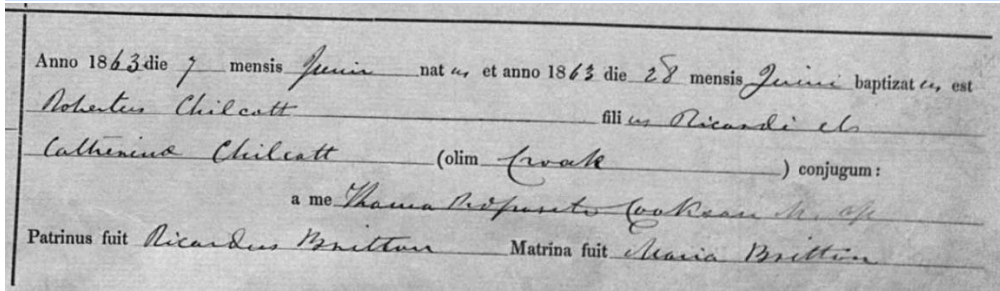 Anno 1863 die 7 mensis Junii natus et anno 1863 die 28 mensis Junii baptizatus est
Robertus Chilcott filius Ricardi et
Catherinæ Chilcott (olim Croak) conjugum:
a me Thoma Cookson
Patrinus fuit Ricardus Britton Matrina fuit Maria Britton